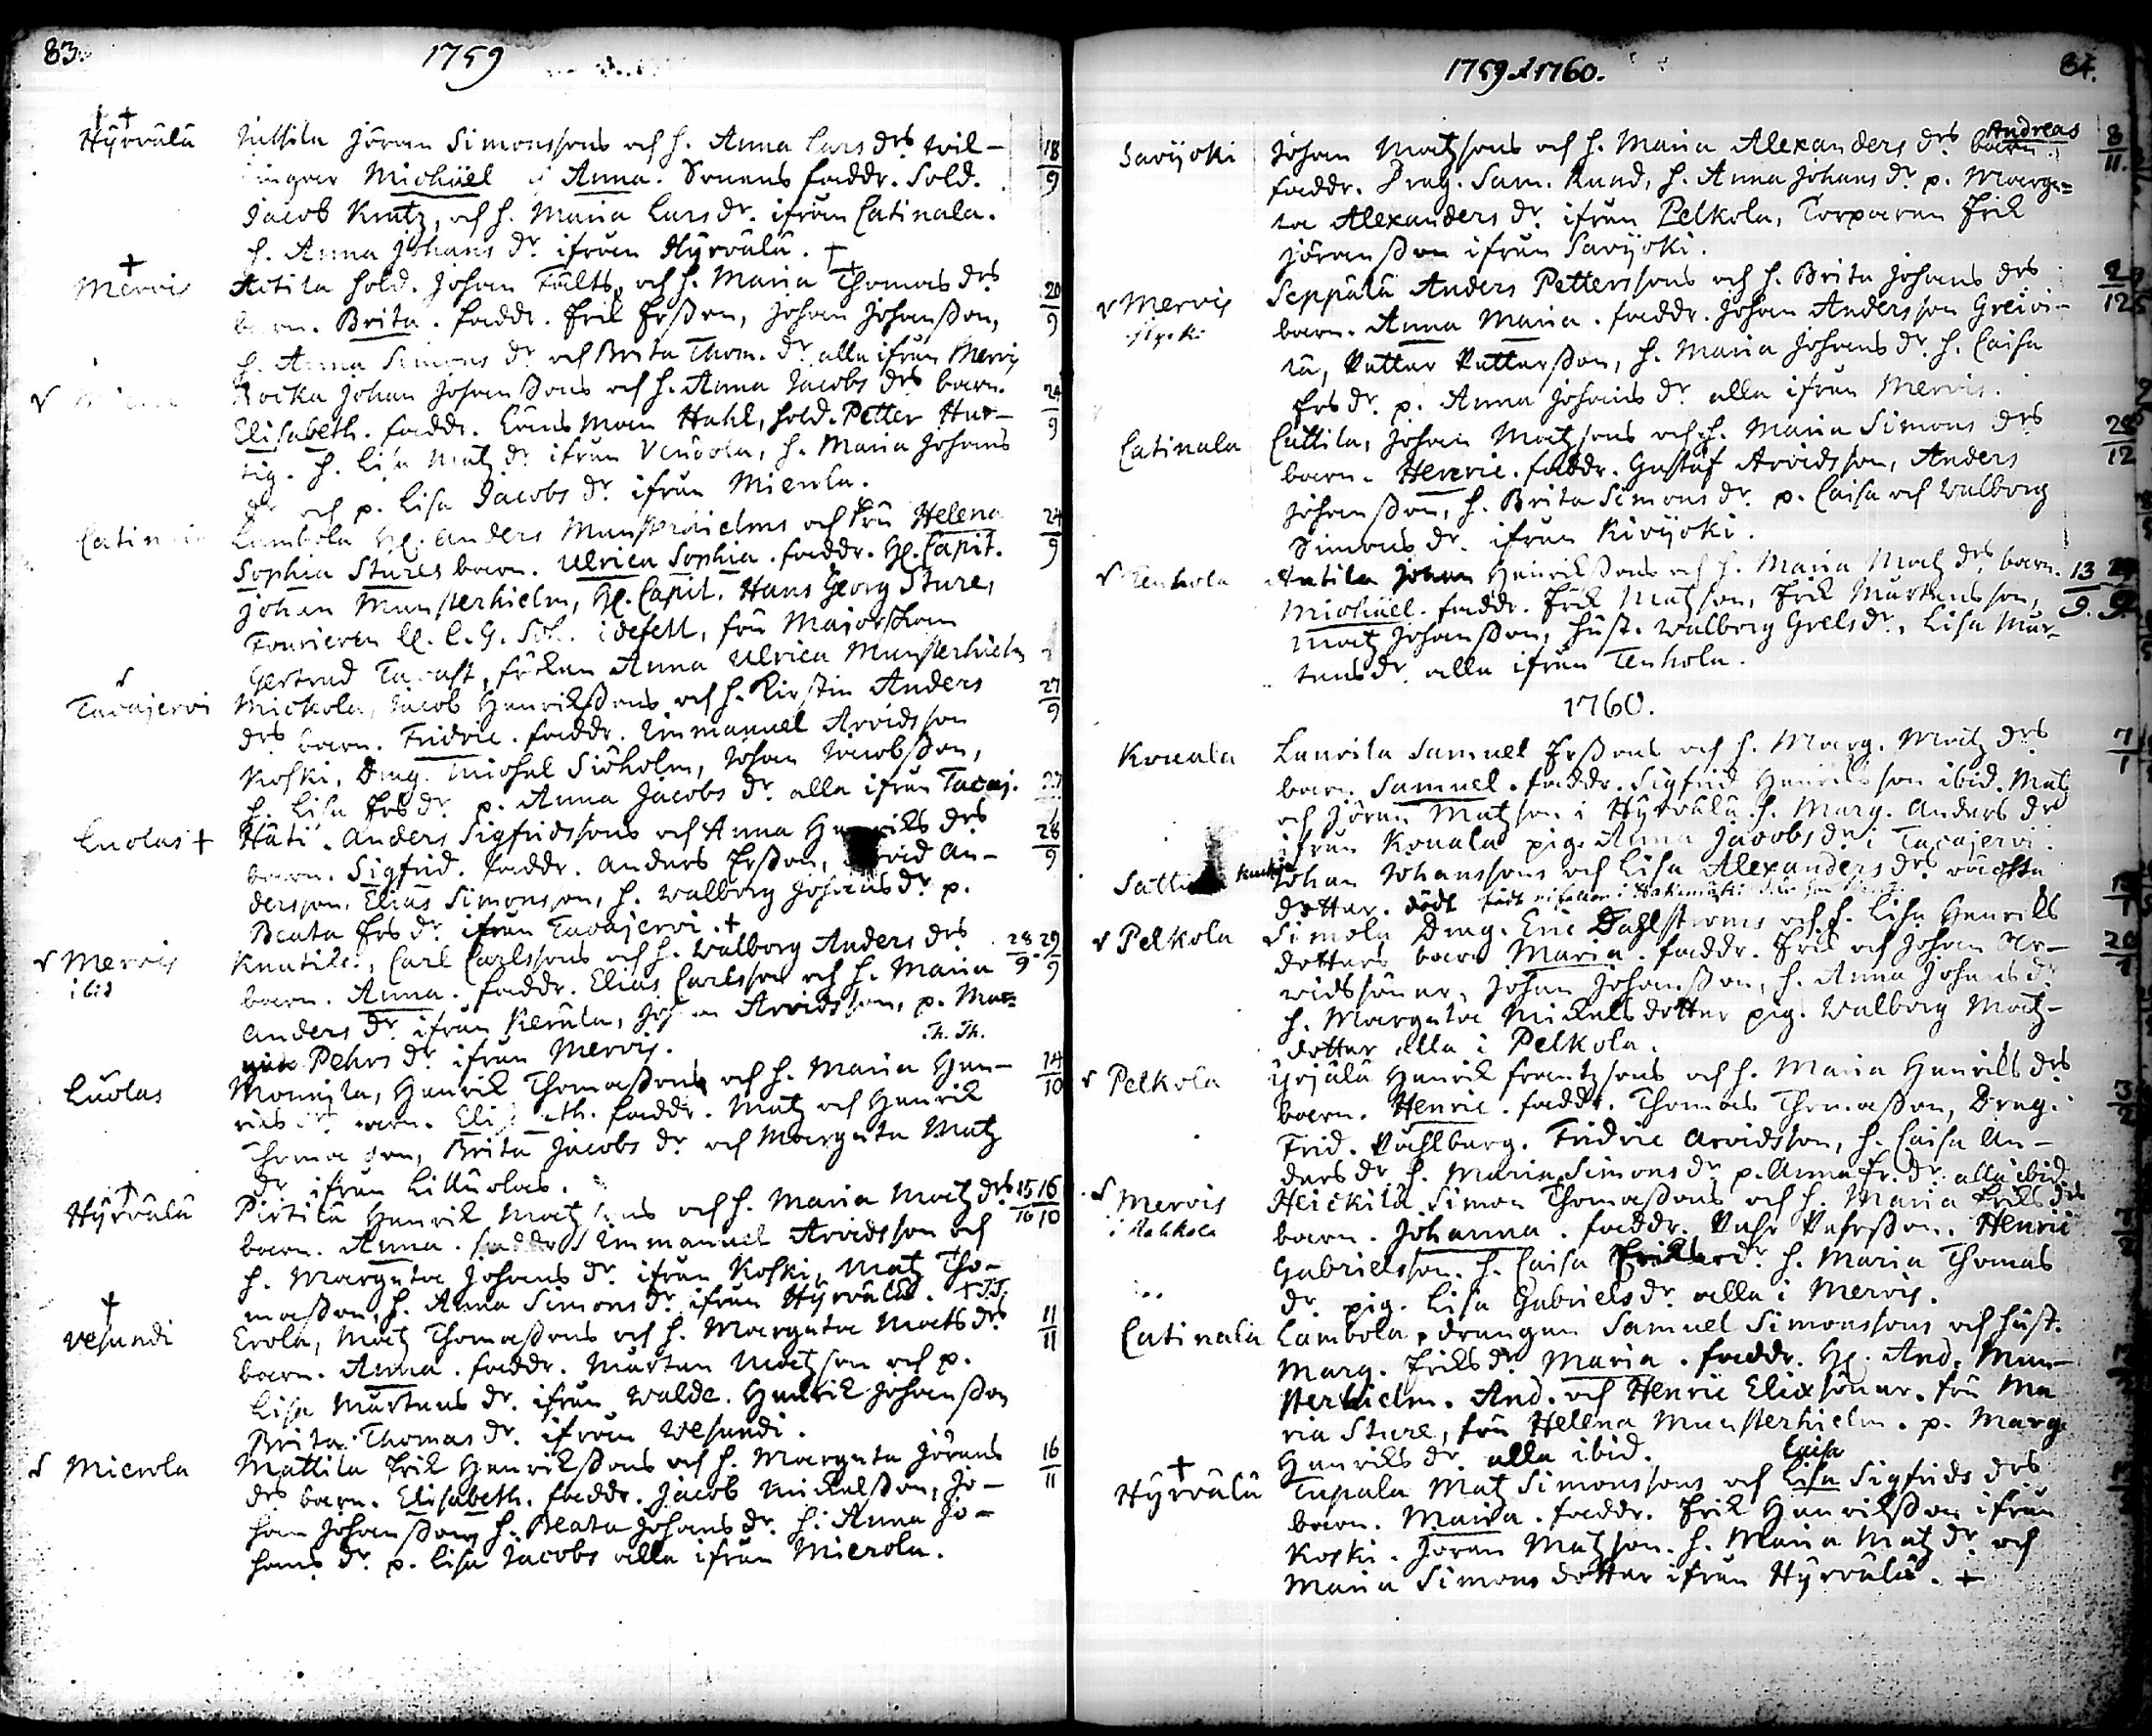 83.
1759
Hÿrvälä Juttila Jöran Simonssons och h. Anna Lars drs twil- 18/9
lingar Michäel Anna. Sonens faddr. Sold.
Jacob Krutz, och h. Maria Lars dr. ifrån Catinala.
h. Anna Johans dr ifrån Hÿrvälä. +
Mervis Antila Sold. Johan Fälts, och h. Maria Thomas drs 20/9
barn. Brita. faddr. Erik Ersson, Johan Johansson,
h. Anna Simons dr och Brita Thom. dr alla ifrån Mervis
Johan Johanssons och h. Anna Jacobs drs barn. 24/9
Elisabeth. faddr. Läns man Hahl, Sold. Petter Hur-
tig. h. Lisa Matz dr ifrån h. Maria Johans
dr och p. Lisa Jacobs dr ifrån Mierola.
Catin Lambola H. Anders Munsterhielms och fru Helena 24/9
Sophia Stures barn. Ulrica Sophia. faddr. H. Capit.
Johan Munsterhielm, H. Capit. Hans Georg Sture,
Fourieren C. G. Idefelt, fru Majorskan
Gertrud, fröken Anna Ulrica Munsterhielm
Tavajervi Mickola, Jacob Henrikssons och h. Kirstin Anders 27/9
drs barn. Fridric. faddr. Emmanuel Arvidsson
Koski, Drag. Michel Siöholm, Johan Jacobsson,
h. Lisa Ers dr p. Anna Jacobs dr alla ifrån Tavaj.
Luolas + Häti. Anders Sigfridssons och Anna Henriks drs 28/9
barn. Sigfrid. faddr. Anders Ersson, An-
dersson, Elias Simonsson, h. Walborg Johans dr p.
Beata Ers dr ifrån Tavajervi. +
Mervis Knutila, Carl Carlssons och h. Walborg Anders drs 28/9. 29/9
ibid barn. Anna. faddr. Elias Carlsson och h. Maria
Anders dr ifrån Kerälä, Johan Arvidsson, p. Mar-
Pehrs dr ifrån Mervis. Th. Th.
Luolas Monnila, Henrik Thomassons och h. Maria Hen- 14/10
riks drs barn. Elisabeth. faddr. Matz och Henrik
Thomasson, Brita Jacobs dr och Margeta Matz
dr ifrån Lilluolas.
Hÿrvälä Pirtilä Henrik Matzsons och h. Maria Matz drs 15/10 16/10
barn. Anna. faddr. Emmanuel Arvidsson och
h. Margeta Johans dr ifrån Koski, Matz Tho-
masson, h. Anna Simons dr ifrån Hÿrvälä.
Vesundi Erola, Matz Thomassons och h. Margeta Mats drs 11/11
barn. Anna. faddr. Mårten Matzson och p.
Lisa Mårtens dr. ifrån Walde. Henrik Johansson
Brita Thomas dr. ifrån Vesundi.
Mierola Mattila Erik Henrikssons och h. Margeta Jörans 16/11
drs barn. Elisabeth. faddr. Jacob Mickelsson, Jo-
han Johansson, h. Beata Johans dr. h. Anna Jo-
hans dr. p. Lisa Jacobs alla ifrån Mierola.
1759 & 1760.
84.
Andreas
Savÿoki Johan Matzsons och h. Maria Alexanders drs barn. 8/11
faddr. Drag. Sam. Rund, h. Anna Johans dr p. Marge-
ta Alexanders dr ifrån Pelkola, Torparen Erik
Jöransson ifrån Savÿoki.
Mervis Seppälä Anders Petterssons och h. Brita Johans drs 9/12
barn. Anna Maria. faddr. Johan Andersson Greivi-
lä, Petter Pettersson, h. Maria Johans dr h. Caisa
Ers dr. p. Anna Johans dr alla ifrån Mervis.
Catinala Cuttila, Johan Matzsons och h. Maria Simons drs 28/12
barn. Henric. faddr. Gustaf Arvidsson, Anders
Johansson, h. Brita Simons dr p. Caisa och Walborg
Simons dr. ifrån Kivÿoki.
Tenhola Antila Johan Henrikssons och h. Maria Matz drs barn. 13/9.
Michäel. faddr. Erik Matzson, Erik Mårtensson,
Matz Johansson, hust. Walborg Grels dr., Lisa Mår-
tens dr. alla ifrån Tenhola.
1760.
Kouala Laurila Samuel Erssons och h. Marg. Matz drs 7/1
barn. Samuel. faddr. Sigfrid Henricsson ibid. Matz
och Jöran Matzson i Hÿrvälä. h. Marg. Anders dr
ifrån Kouala pig. Anna Jacobs dr i Tavajervi.
Johan Johanssons och Lisa Alexanders drs oächta
dotter. död
Pelkola Simola Drag. Eric Dahlströms och h. Lisa Henriks 20/1
dotters barn Maria. faddr. Erik och Johan Ar-
vidssöner, Johan Johansson, h. Anna Johans dr
h. Margeta Mickels dotter pig. Walborg Matz-
dotter alla i Pelkola.
Pelkola Yrjälä Henrik Frantzsons och h. Maria Henriks drs 3/2
barn. Henric. faddr. Thomas Thomasson, Drag.
Frid. Wahlberg. Fridric Arvidsson, h. Caisa An-
ders dr h. Maria Simons dr p. Anna Er. dr. alla ibid.
Mervis Heickilä Simon Thomassons och h. Maria Eriks drs
barn. Johanna. faddr. Pehr Pehrsson. Henric
Gabrielsson. h. Caisa Eriks dr. h. Maria Thomas
dr. pig. Lisa Gabriels dr. alla i Mervis.
Catinala Lambola, drengen Samuel Simonssons och hust.
Marg. Eriks dr Maria. faddr. H. And. Mun-
sterhielm. And. och Henric Eliæ söner. fru Ma
ria Sture, fru Helena Munsterhielm. p. Marg.
Henriks dr. alla ibid.
Caisa
Hÿrvälä Tupala Mat Simonssons och Lisa Sigfrids drs
barn. Maria. faddr. Erik Henriksson ifrån
Koski. Jöran Matzson. h. Maria Matz dr och
Maria Simons dotter ifrån Hÿrvälä. +